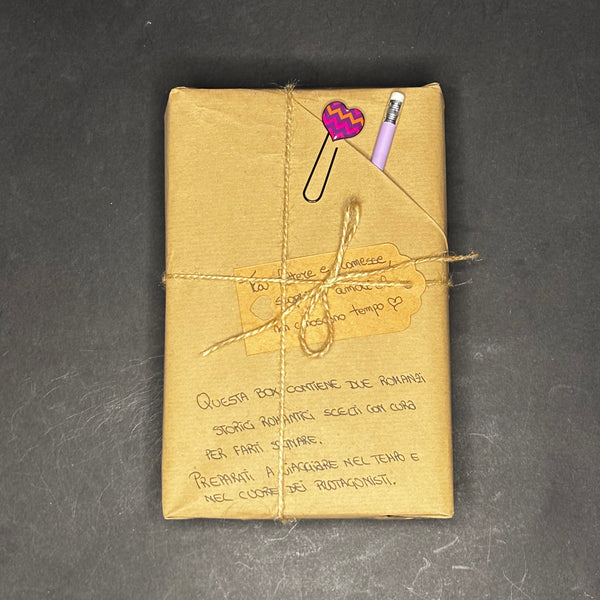 Tra lettere e promesse,
scopri amori che
non conoscono tempo ♡
QUESTA BOX CONTIENE DUE ROMANZI
STORICI ROMANTICI SCELTI CON CURA
PER FARTI SOGNARE.
PREPARATI A VIAGGIARE NEL TEMPO E
NEL CUORE DEI PROTAGONISTI.